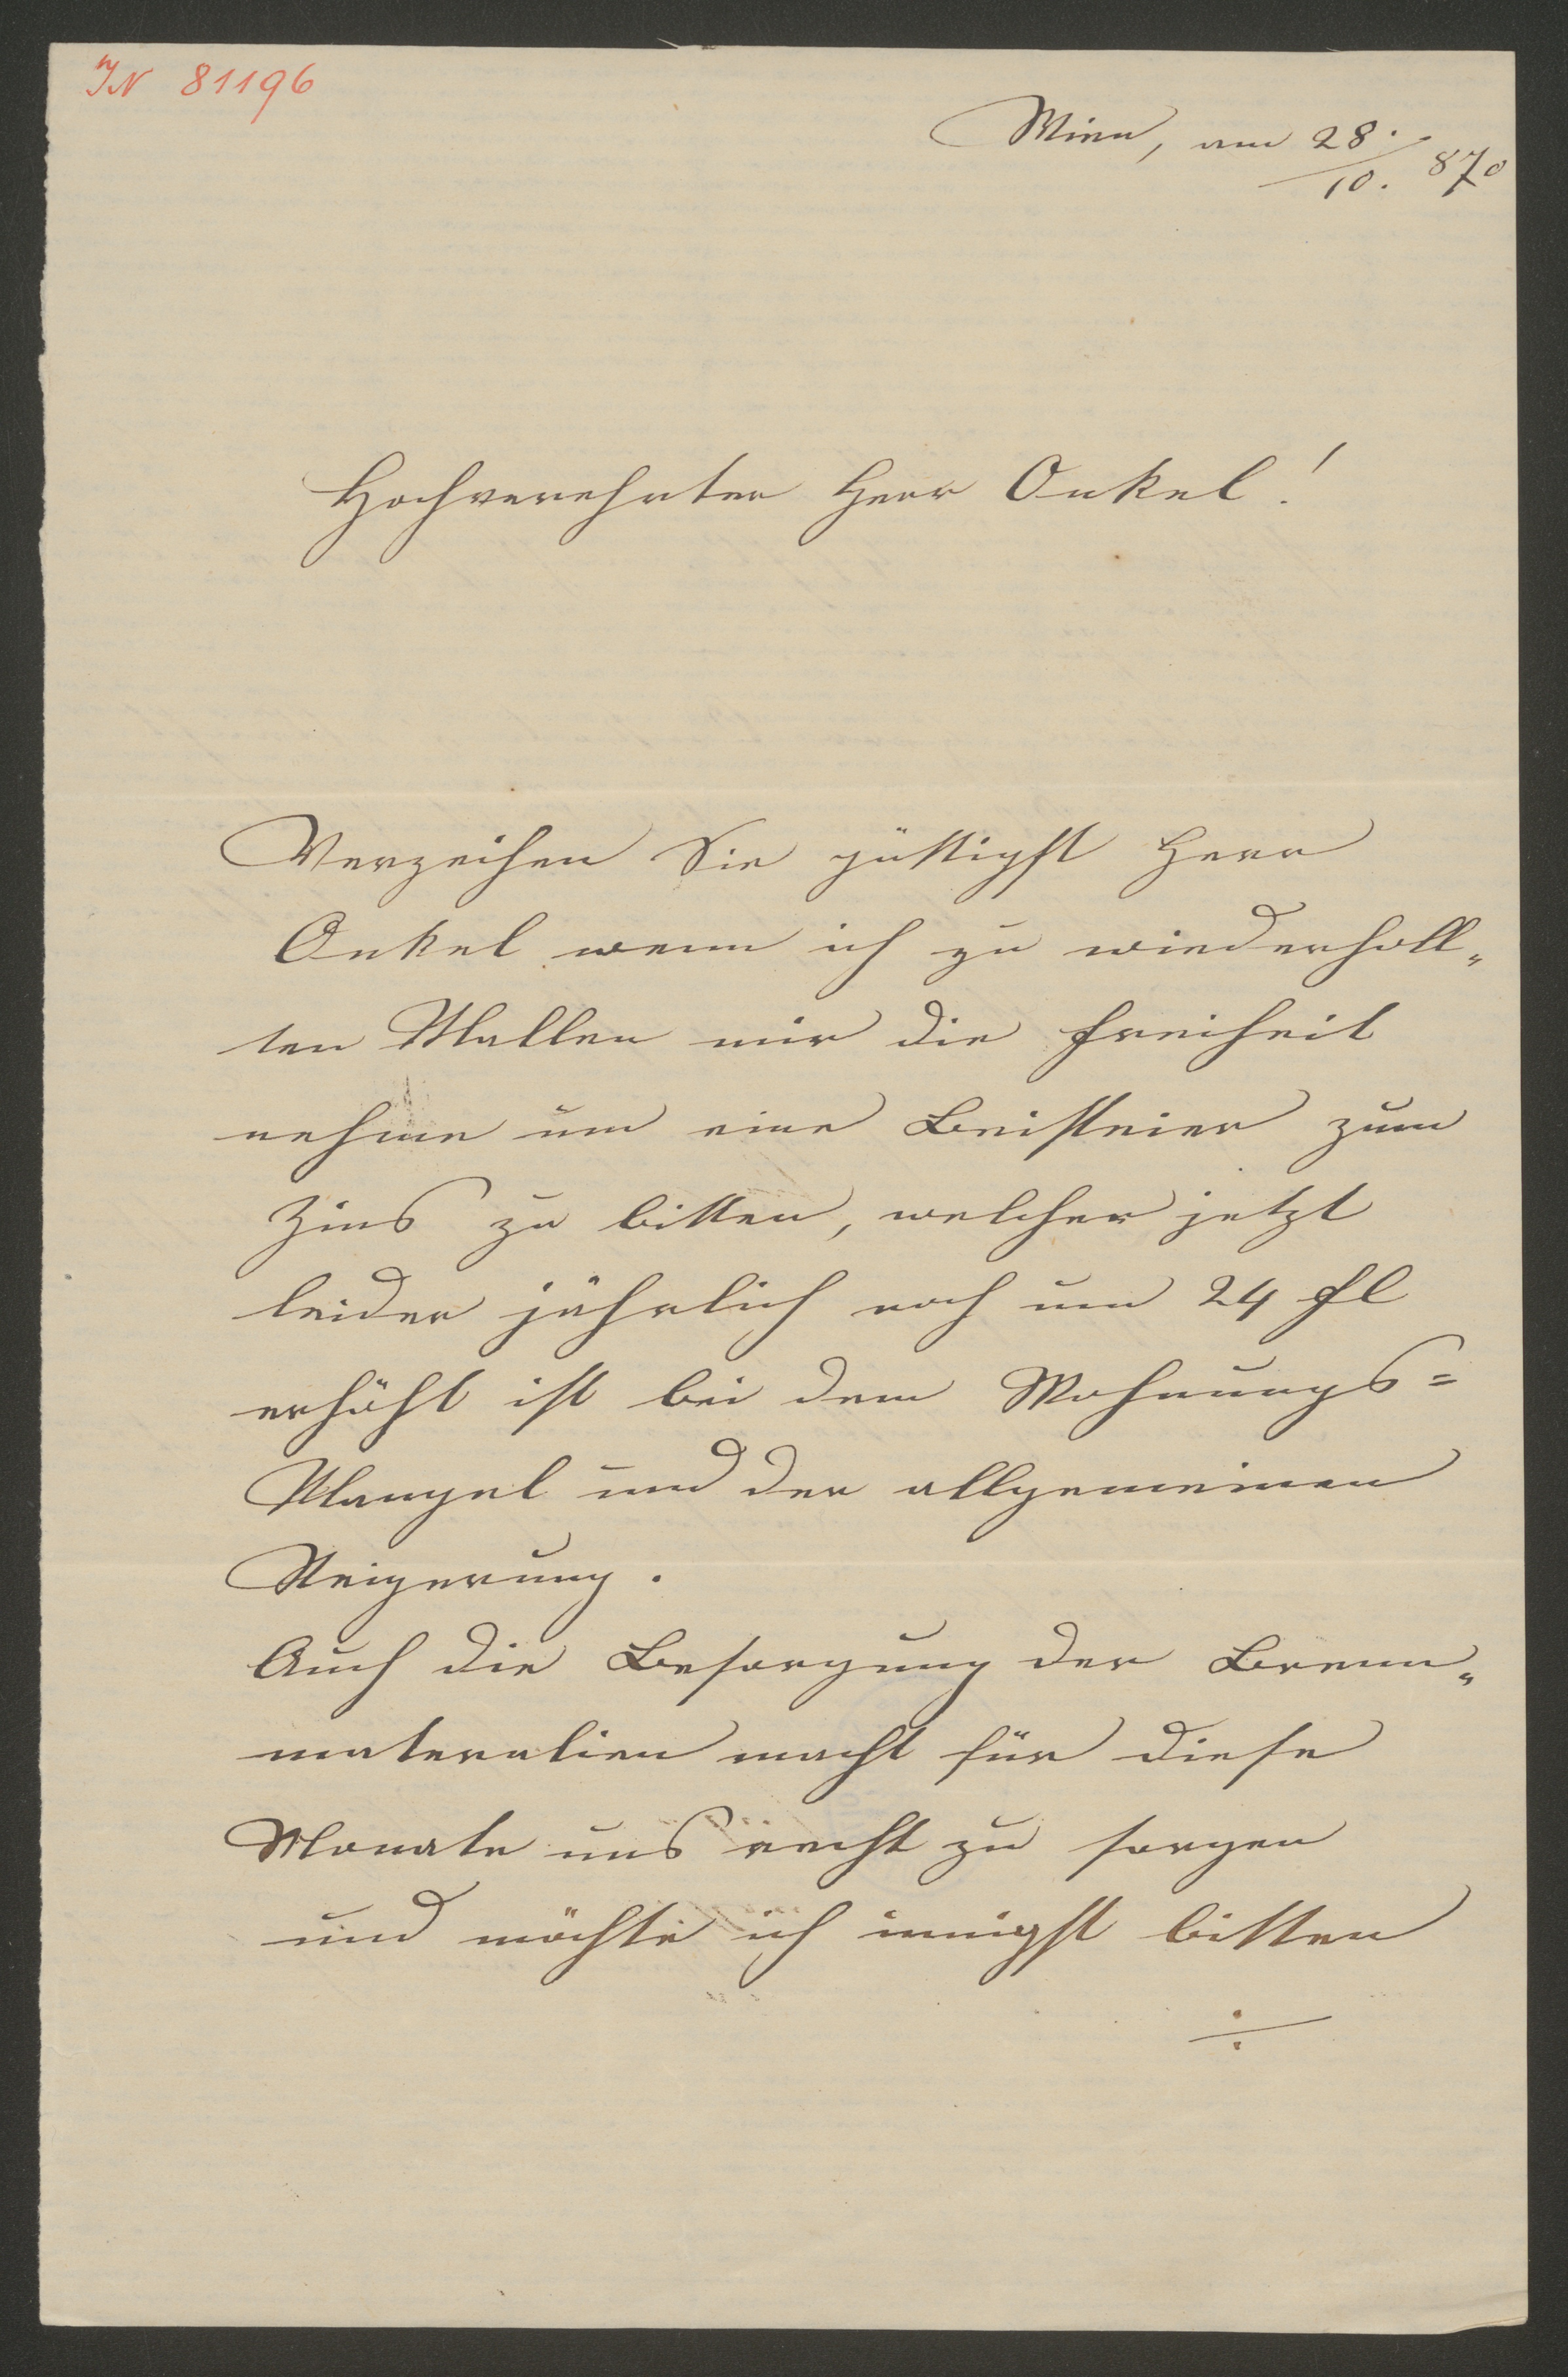 IN 81196
Wien, am 28./10. 870
Hochverehrter Herr Onkel!
Verzeihen Sie güttigst Herr
Onkel wenn ich zu wiederholl„
ten Mallen mir die Freiheit
nehme um eine Beisteier zum
Zins zu bitten, welcher jetzt
leider jährlich noch um 24 fl
erhöht ist bei dem Wohnungs=
Mangel und der allgemeinen
Steigerung.
Auch die Besorgung der Brenn„
materalien macht für diese
Monate uns recht zu sorgen
und möchte ich innigst bitten
÷